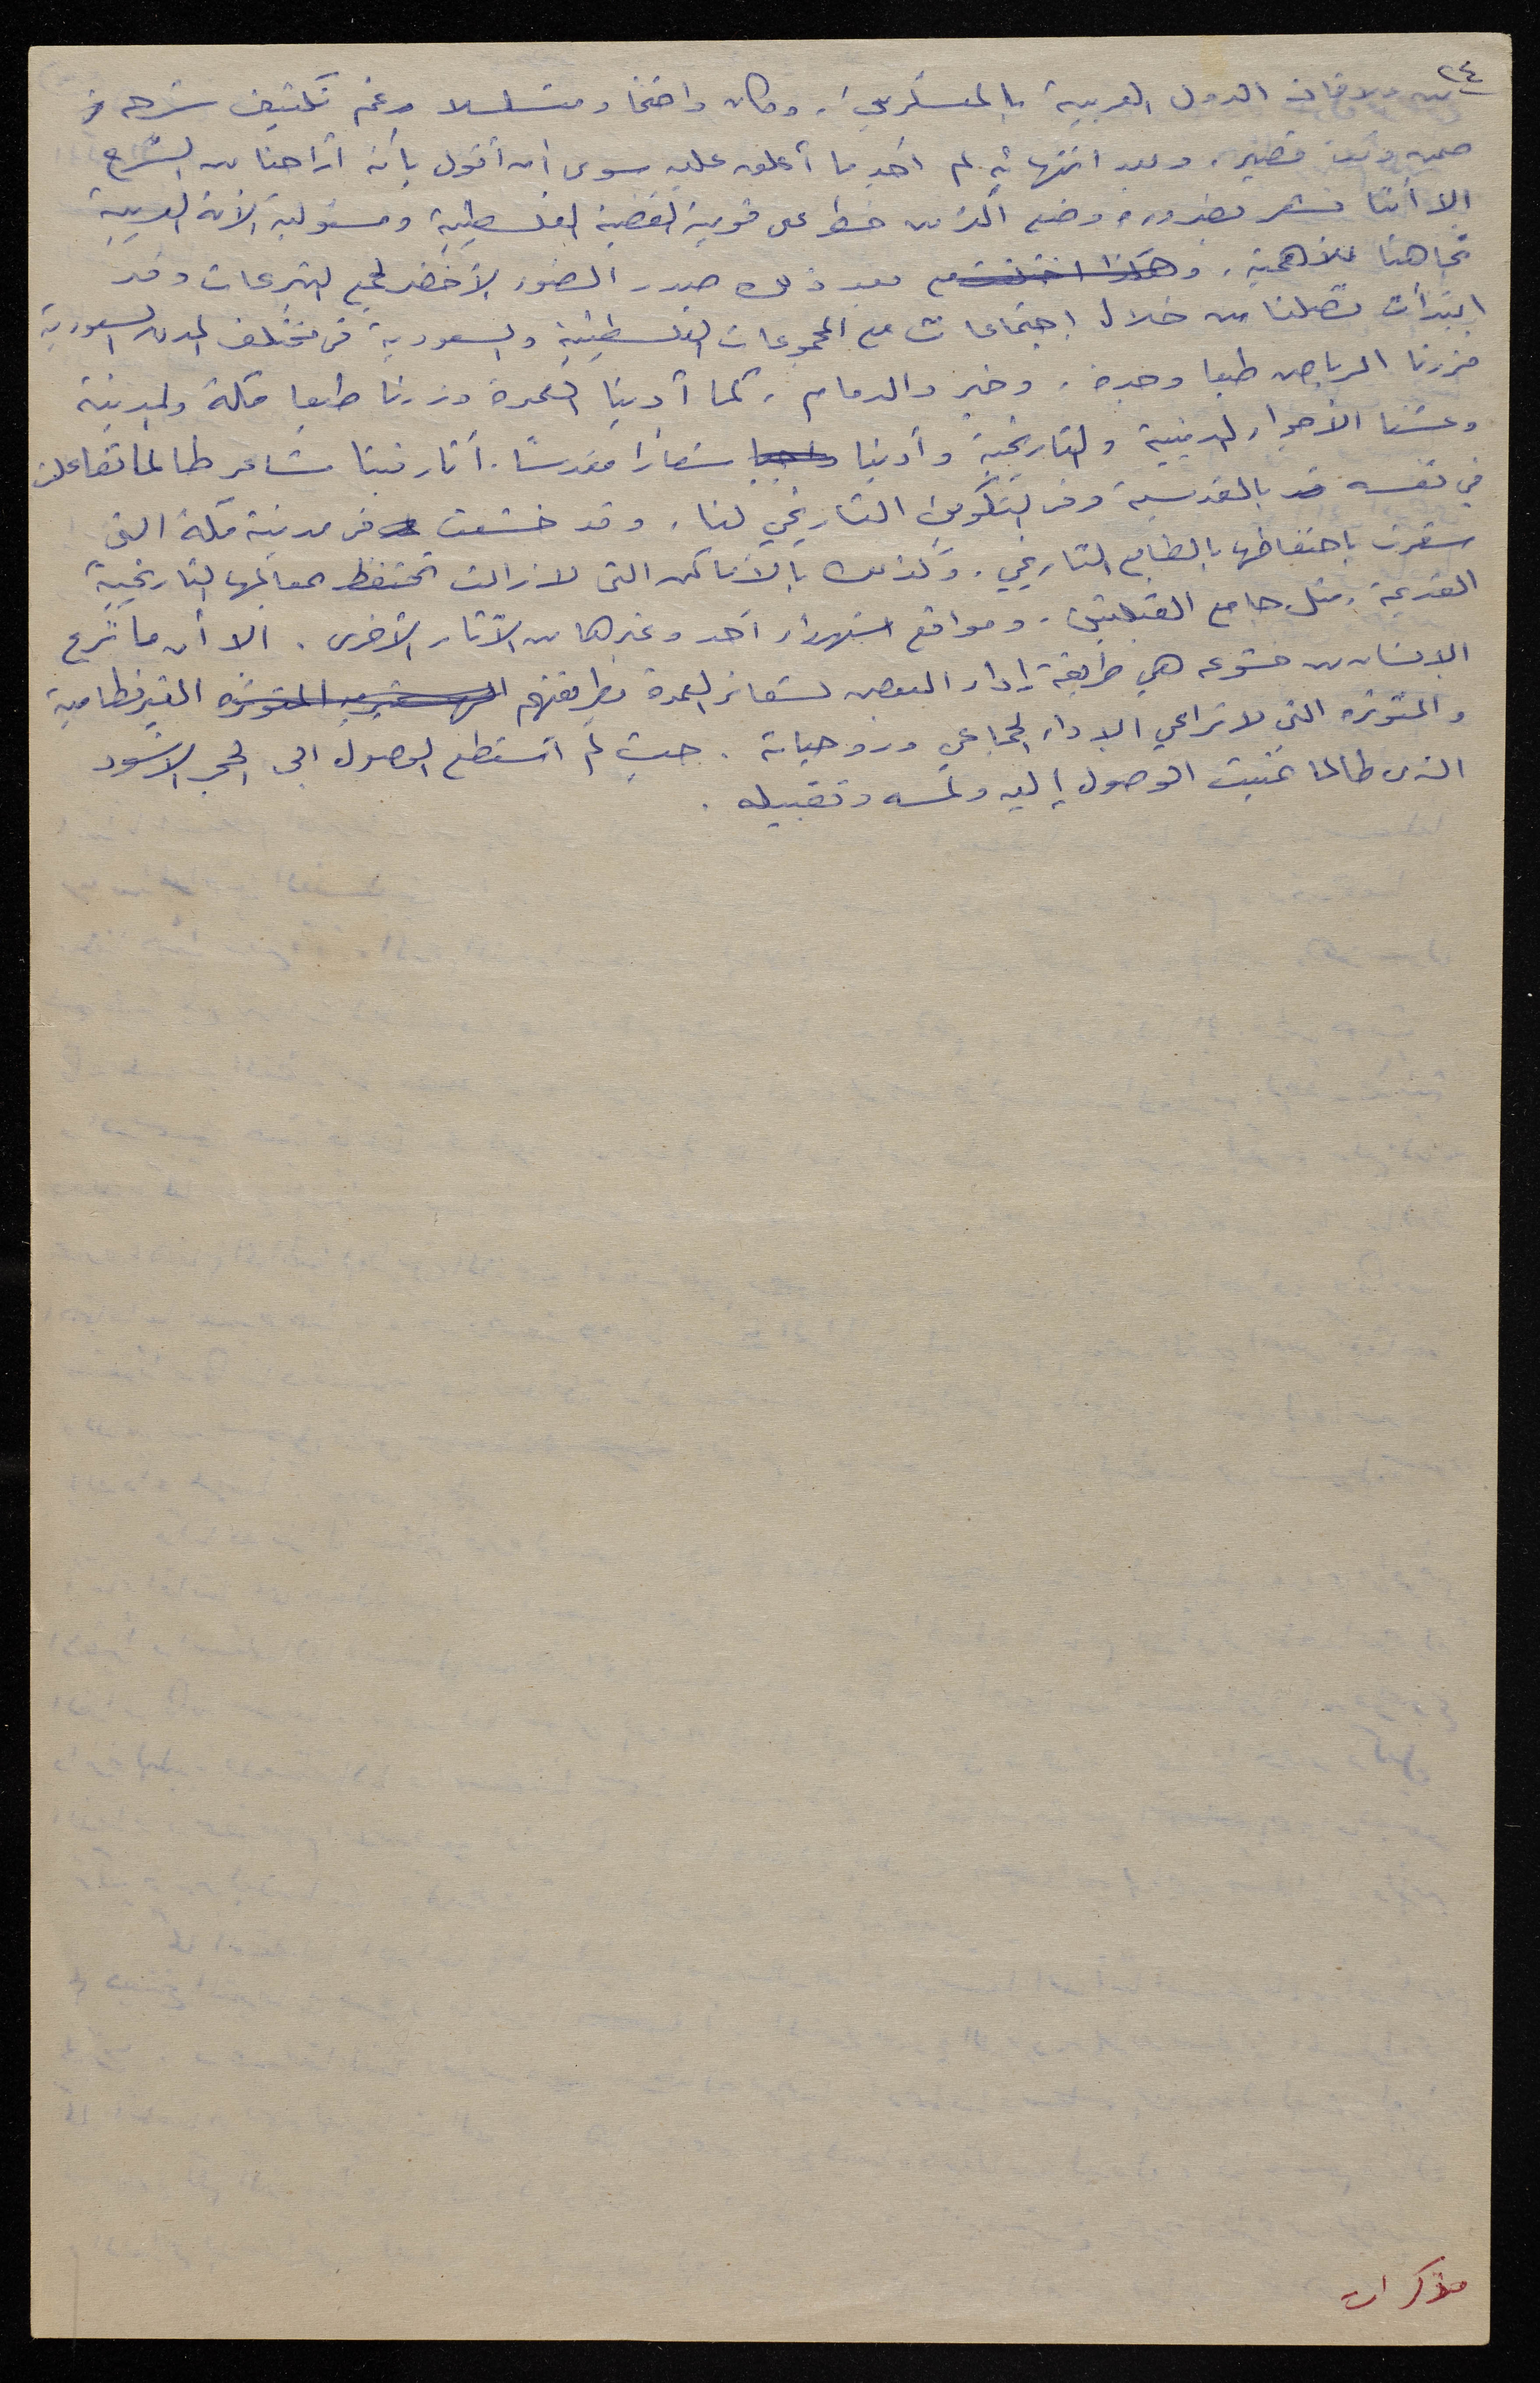 ٢٤
من علاقات الدول العربية بالمعسكرين. وكان واضحا ومتسلسلا رغم تكثيف شرحه في
ضمن وقت قصير. وبعد انتهائه لم أجد ما أعلق عليه سوى أن أقول بأنه أراحنا من الشرح
الا أننا نشعر بضرورة وضع اكثر من خط على قومية القضية الفلسطينية ومسئولية الأمة العربية
تجاهنا للأهمية. وهكذا اختلفت مع بعد ذلك صدر الضوء الأخضر لجمع التبرعات وقد
ابتدأت تصلنا من خلال اجتماعات مع المجموعات الفلسطينية والسعودية في مختلف المدن السعودية
فزرنا الرياض طبعا وجدة. وخبر والدمام. كما أدينا العمرة وزرنا طبعا مكة والمدينة
وعشنا الأجواء الدينية والتاريخية وأدينا واجبا شعائرا مقدسا. أثار فينا مشاعر طالما تفاعلت
في نفسه قد بالقدسية وفي التكوين التاريخي لنا. وقد خشعت في مدينة مكة التي
شعرت باحتفاظها بالطابع التاريخي. وكذلك بالأماكن التي لازالت تحتفظ بمعالمها التاريخية
القديمة. مثل جامع القبلتين. ومواقع استشهاد أحد وغيرها من الآثار الأخرى. الا أن ما يخرج
الانسان من خشوعه هي طريقة إداء البعض لشعائر العمرة بطريقتهم المتوترة الغير نظامية
والمتوترة التي لا تراعي الاداء الجماعي وروحياته. حيث لم أستطع الوصول الى الحجر الأسود
الذي طالما تمنيت الوصول إليه ولمسه وتقبيله.
مذكرات